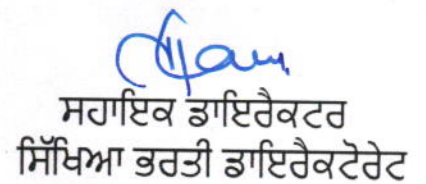 ਸਹਾਇਕ ਡਾਇਰੈਕਟਰ
ਸਿੱਖਿਆ ਭਰਤੀ ਡਾਇਰੈਕਟੋਰੇਟ